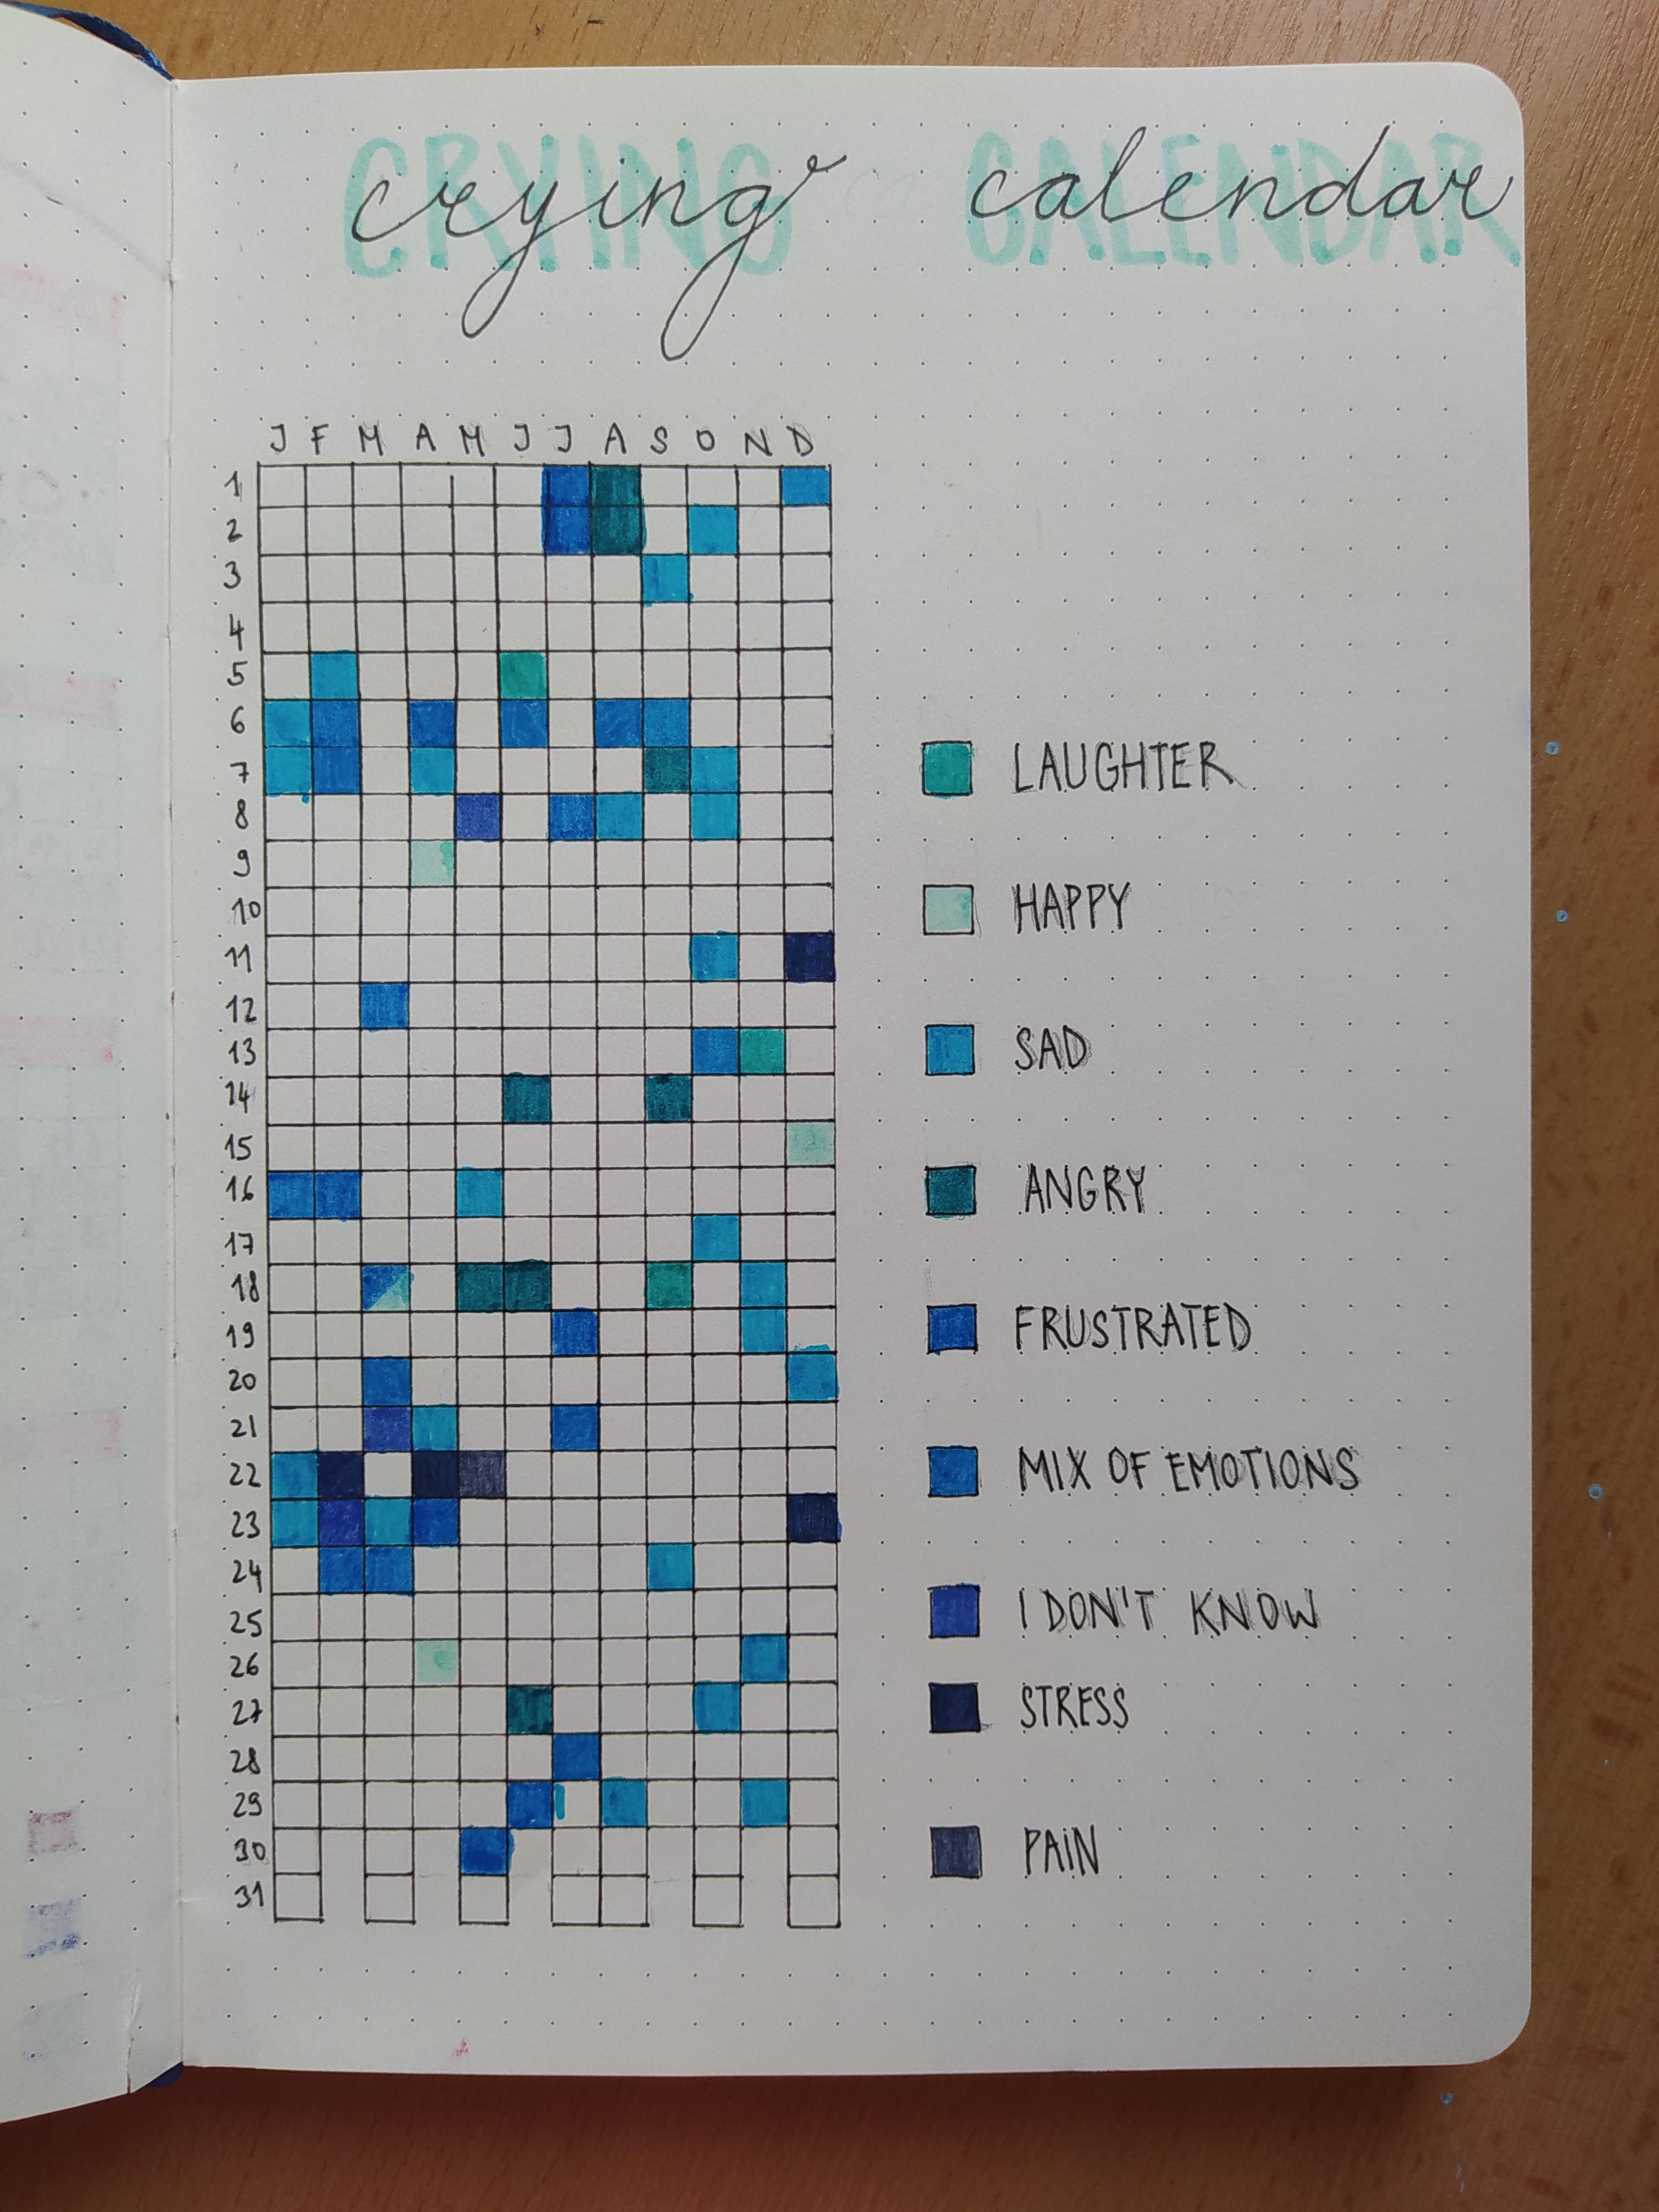 CRYING CALENDAR
crying calendar
J F M A M J J A S O N D
1
2
3
4
5
6
7
8
9
10
11
12
13
14
15
16
17
18
19
20
21
22
23
24
25
26
27
28
29
30
31
LAUGHTER
HAPPY
SAD
ANGRY
FRUSTRATED
MIX OF EMOTIONS
I DON'T KNOW
STRESS
PAIN